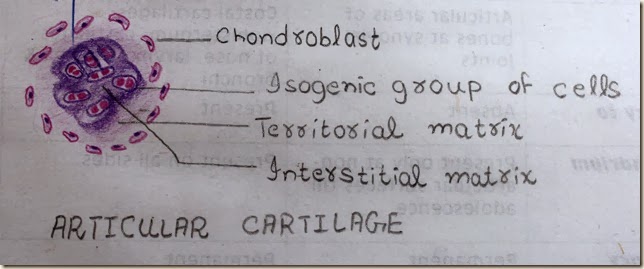 Chondroblast
Isogenic group of cells
Territorial matrix
Interstitial matrix
ARTICULAR CARTILAGE